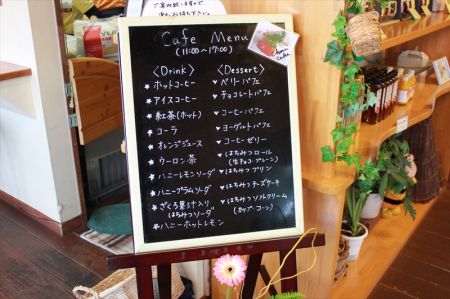 Cafe Menu
(11:00〜17:00)
〈Drink〉
★ホットコーヒー
★アイスコーヒー
★紅茶(ホット)
★コーラ
★オレンジジュース
★ウーロン茶
★ハニーレモンソーダ
★ハニープラムソーダ
★ざくろ果汁入り
はちみつソーダ
★ハニーホットレモン
〈Dessert〉
♥ベリーパフェ
♥チョコレートパフェ
♥コーヒーパフェ
♥ヨーグルトパフェ
♥コーヒーゼリー
♥はちみつロール
(生チョコ・プレーン)
♥はちみつプリン
♥はちみつチーズケーキ
♥はちみつソフトクリーム
(カップ・コーン)